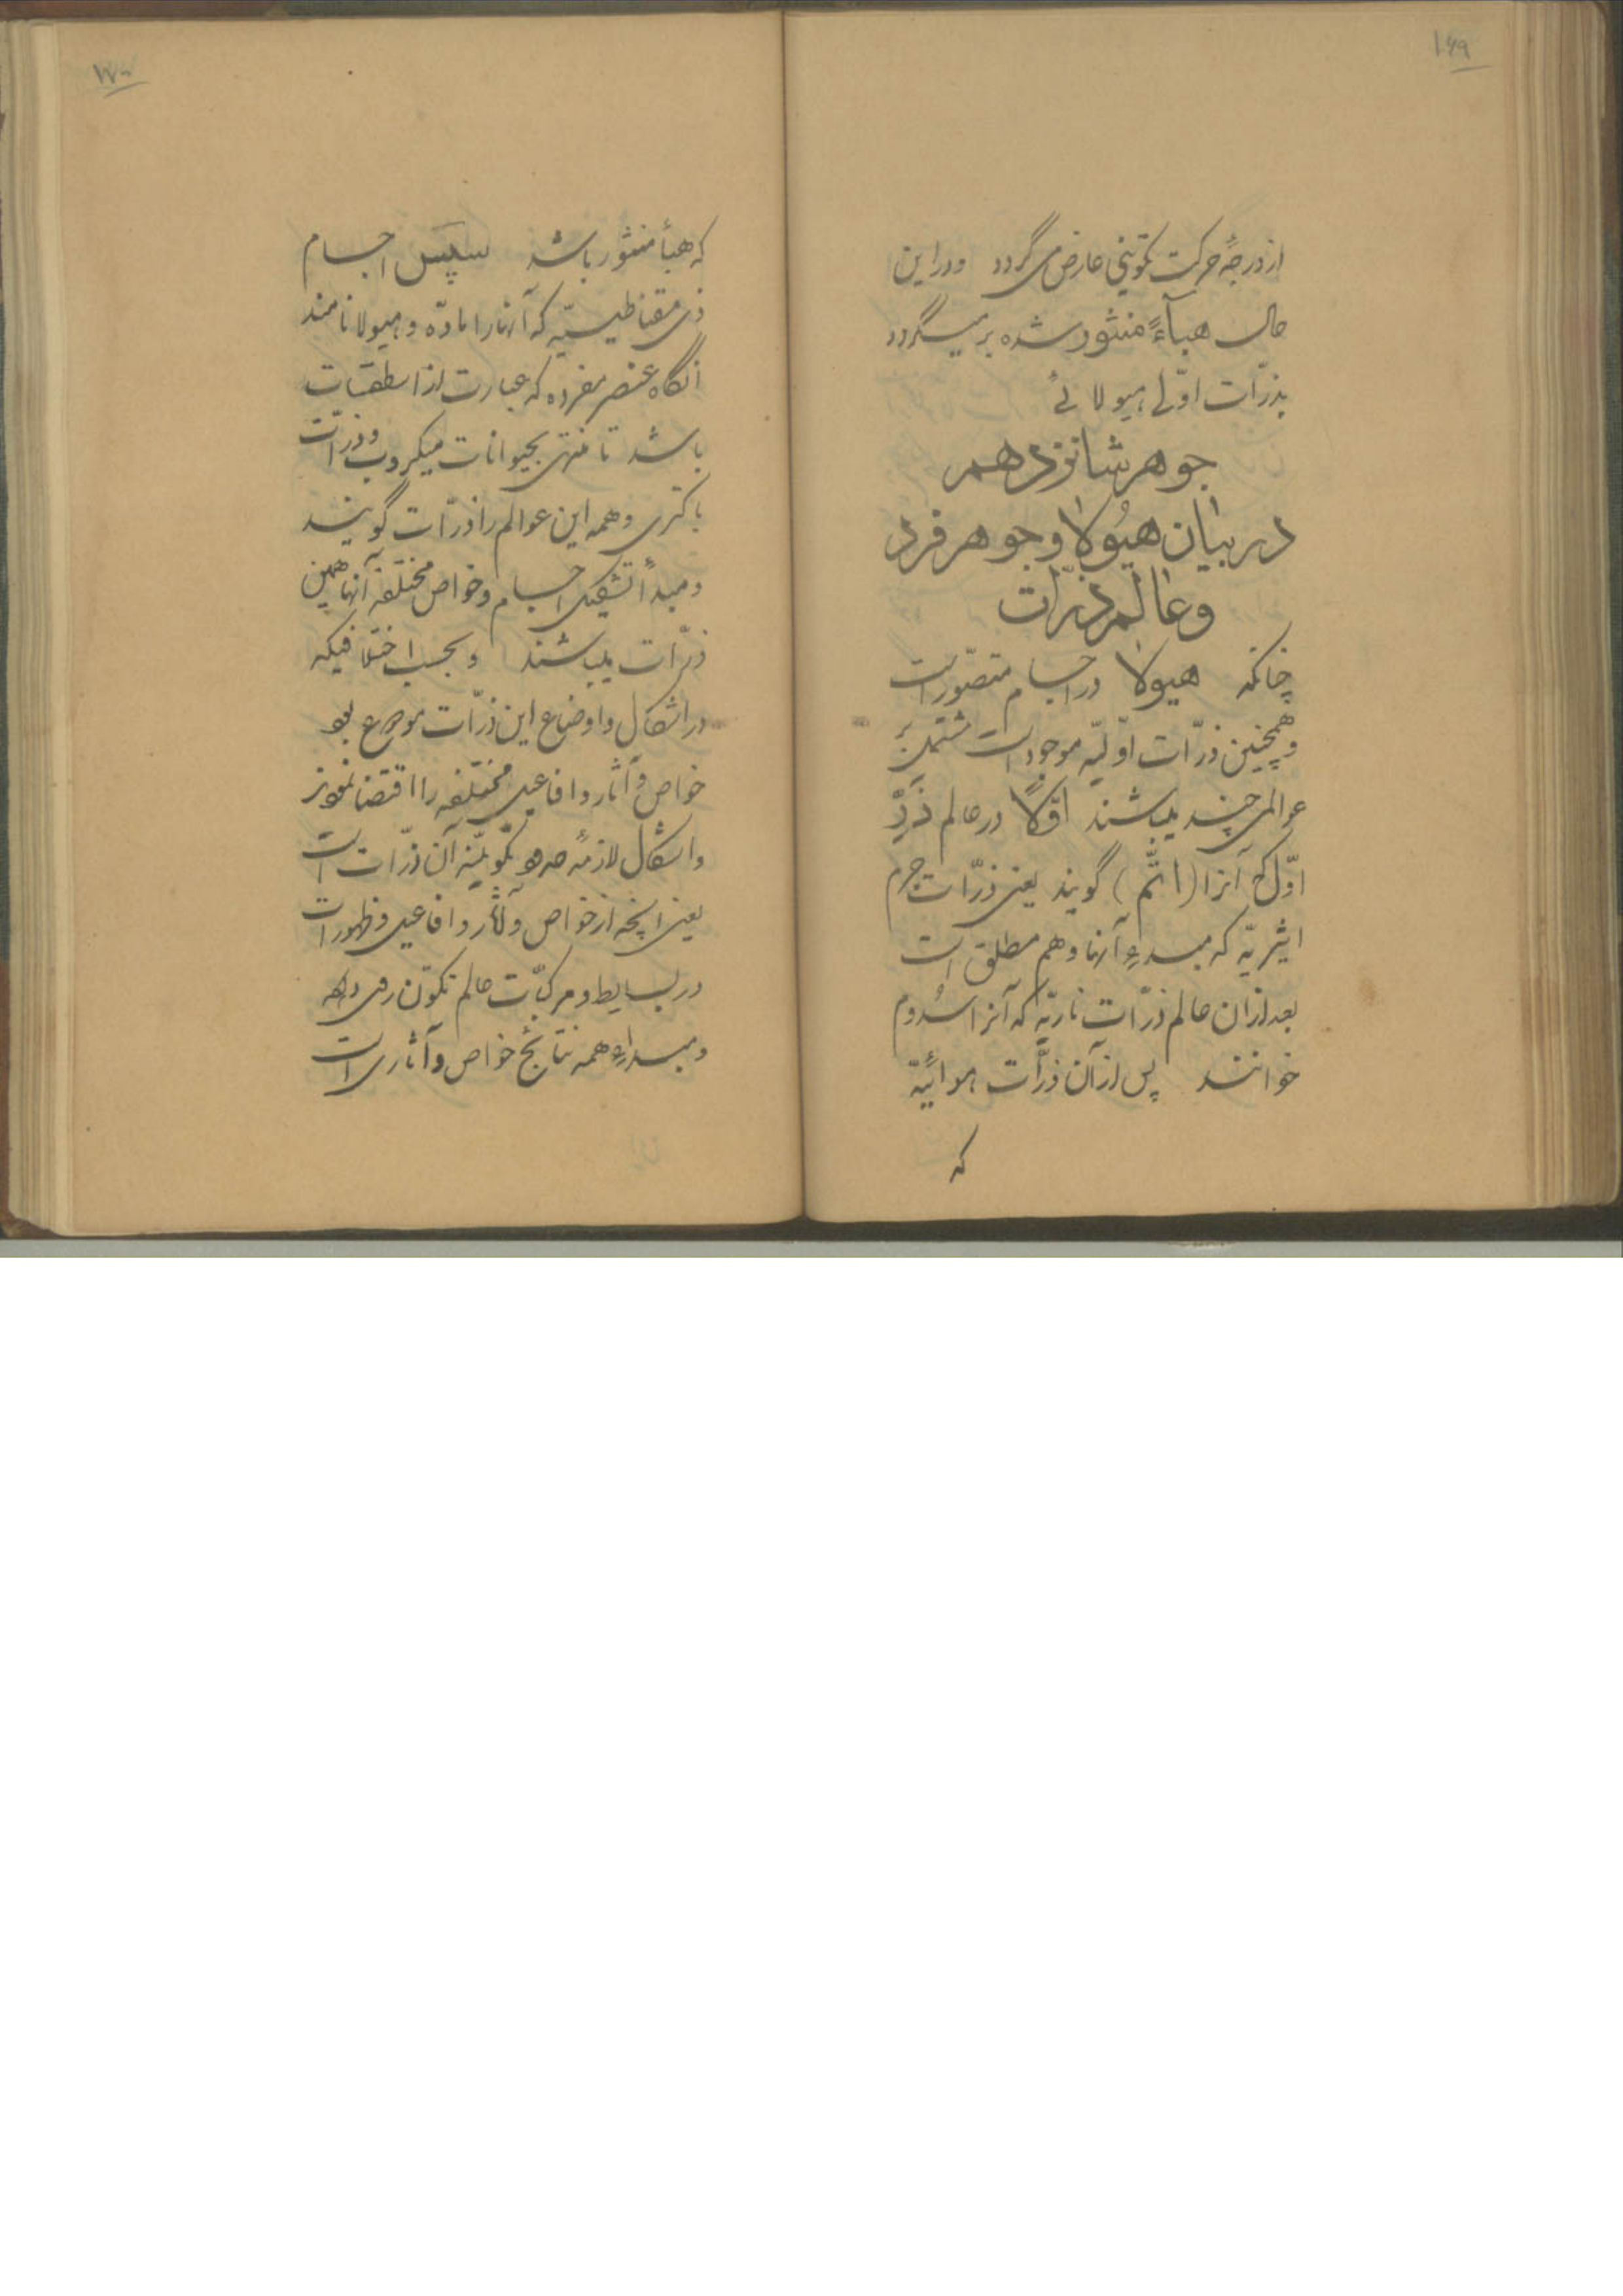 ۱۶۹
از درجهٔ حرکت تکوینی عارض می گردد ودر این
حال هبآءً منثور شده بر میگردد
بذرّات اوّلی هیولائی
جوهر شانزدهم
در بیان هیُولا وجوهر فرد
وعالم ذرّات
چنانکه هیولا در اجسام متصوّر است
وهمچنین ذرّات اوّلیّه موجود است مشتمل بر
عوالمی چند میباشند اوّلاً در عالم ذَرِّ
اوّل که آنرا (اتّم) گویند یعنی ذرّات جرم
اثیریّه که مبدءِ آنها وهم مطلق است
بعد از آن عالم ذرّات ناریّه که آنرا سُدوم
خوانند پس از آن ذرّات هوائیّه
که
۱۷۰
که هبأ منثور باشد سپس اجسام
ذی مقناطیسیّه که آنها را مادّه و هیولا نامند
آنگاه عنصر مفرده که عبارت از اسطقسات
باشد تا منتهی بحیوانات میکروب وذرّات
باکتری وهمه این عوالم را ذرّات گویند
ومبدأ تشکیل اجسام وخواص مختلفهٔ آنها همین
ذرّات میباشند وبحسب اختلافیکه
در اشکال واوضاع این ذرّات موضوع بود
خواص وآثار وافاعیل مختلفه را اقتضا نمودند
واشکال لازمهٔ تکوینیّه آن ذرّات است
یعنی آنچه از خواص وآثار وافاعیل وظهورات
در بسایط ومرکبّات عالم تکوّن روی دهد
ومبداءِ همه نتایج خواص وآثاری است